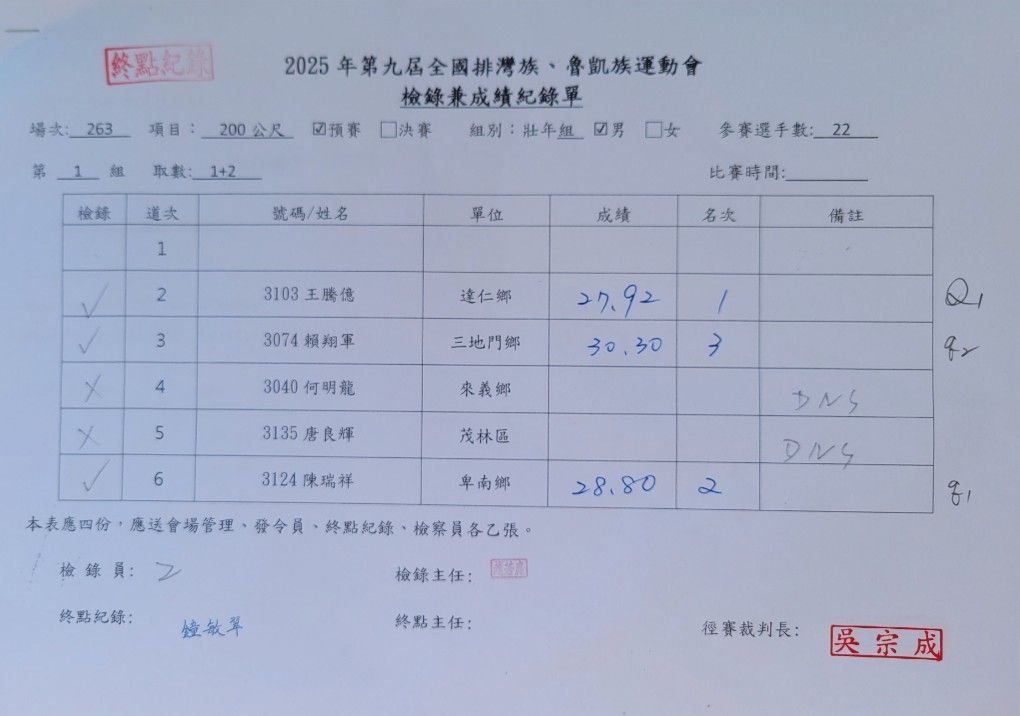 終點紀錄
2025 年第九屆全國排灣族、魯凱族運動會
檢錄兼成績紀錄單
場次: 263 項目： 200 公尺 ☑預賽 □決賽 組別：壯年組 ☑男 □女 參賽選手數: 22
第 1 組 取數: 1+2 比賽時間:
檢錄 道次 號碼/姓名 單位 成績 名次 備註
1
✓ 2 3103 王騰億 達仁鄉 27.92 1 Q1
✓ 3 3074 賴翔軍 三地門鄉 30.30 3 q2
× 4 3040 何明龍 來義鄉 DNS
× 5 3135 唐良輝 茂林區 DNS
✓ 6 3124 陳瑞祥 卑南鄉 28.80 2 q1
本表應四份，應送會場管理、發令員、終點紀錄、檢察員各乙張。
檢 錄 員: 2 檢錄主任:
終點紀錄: 鐘敏翠 終點主任: 徑賽裁判長: 吳宗成